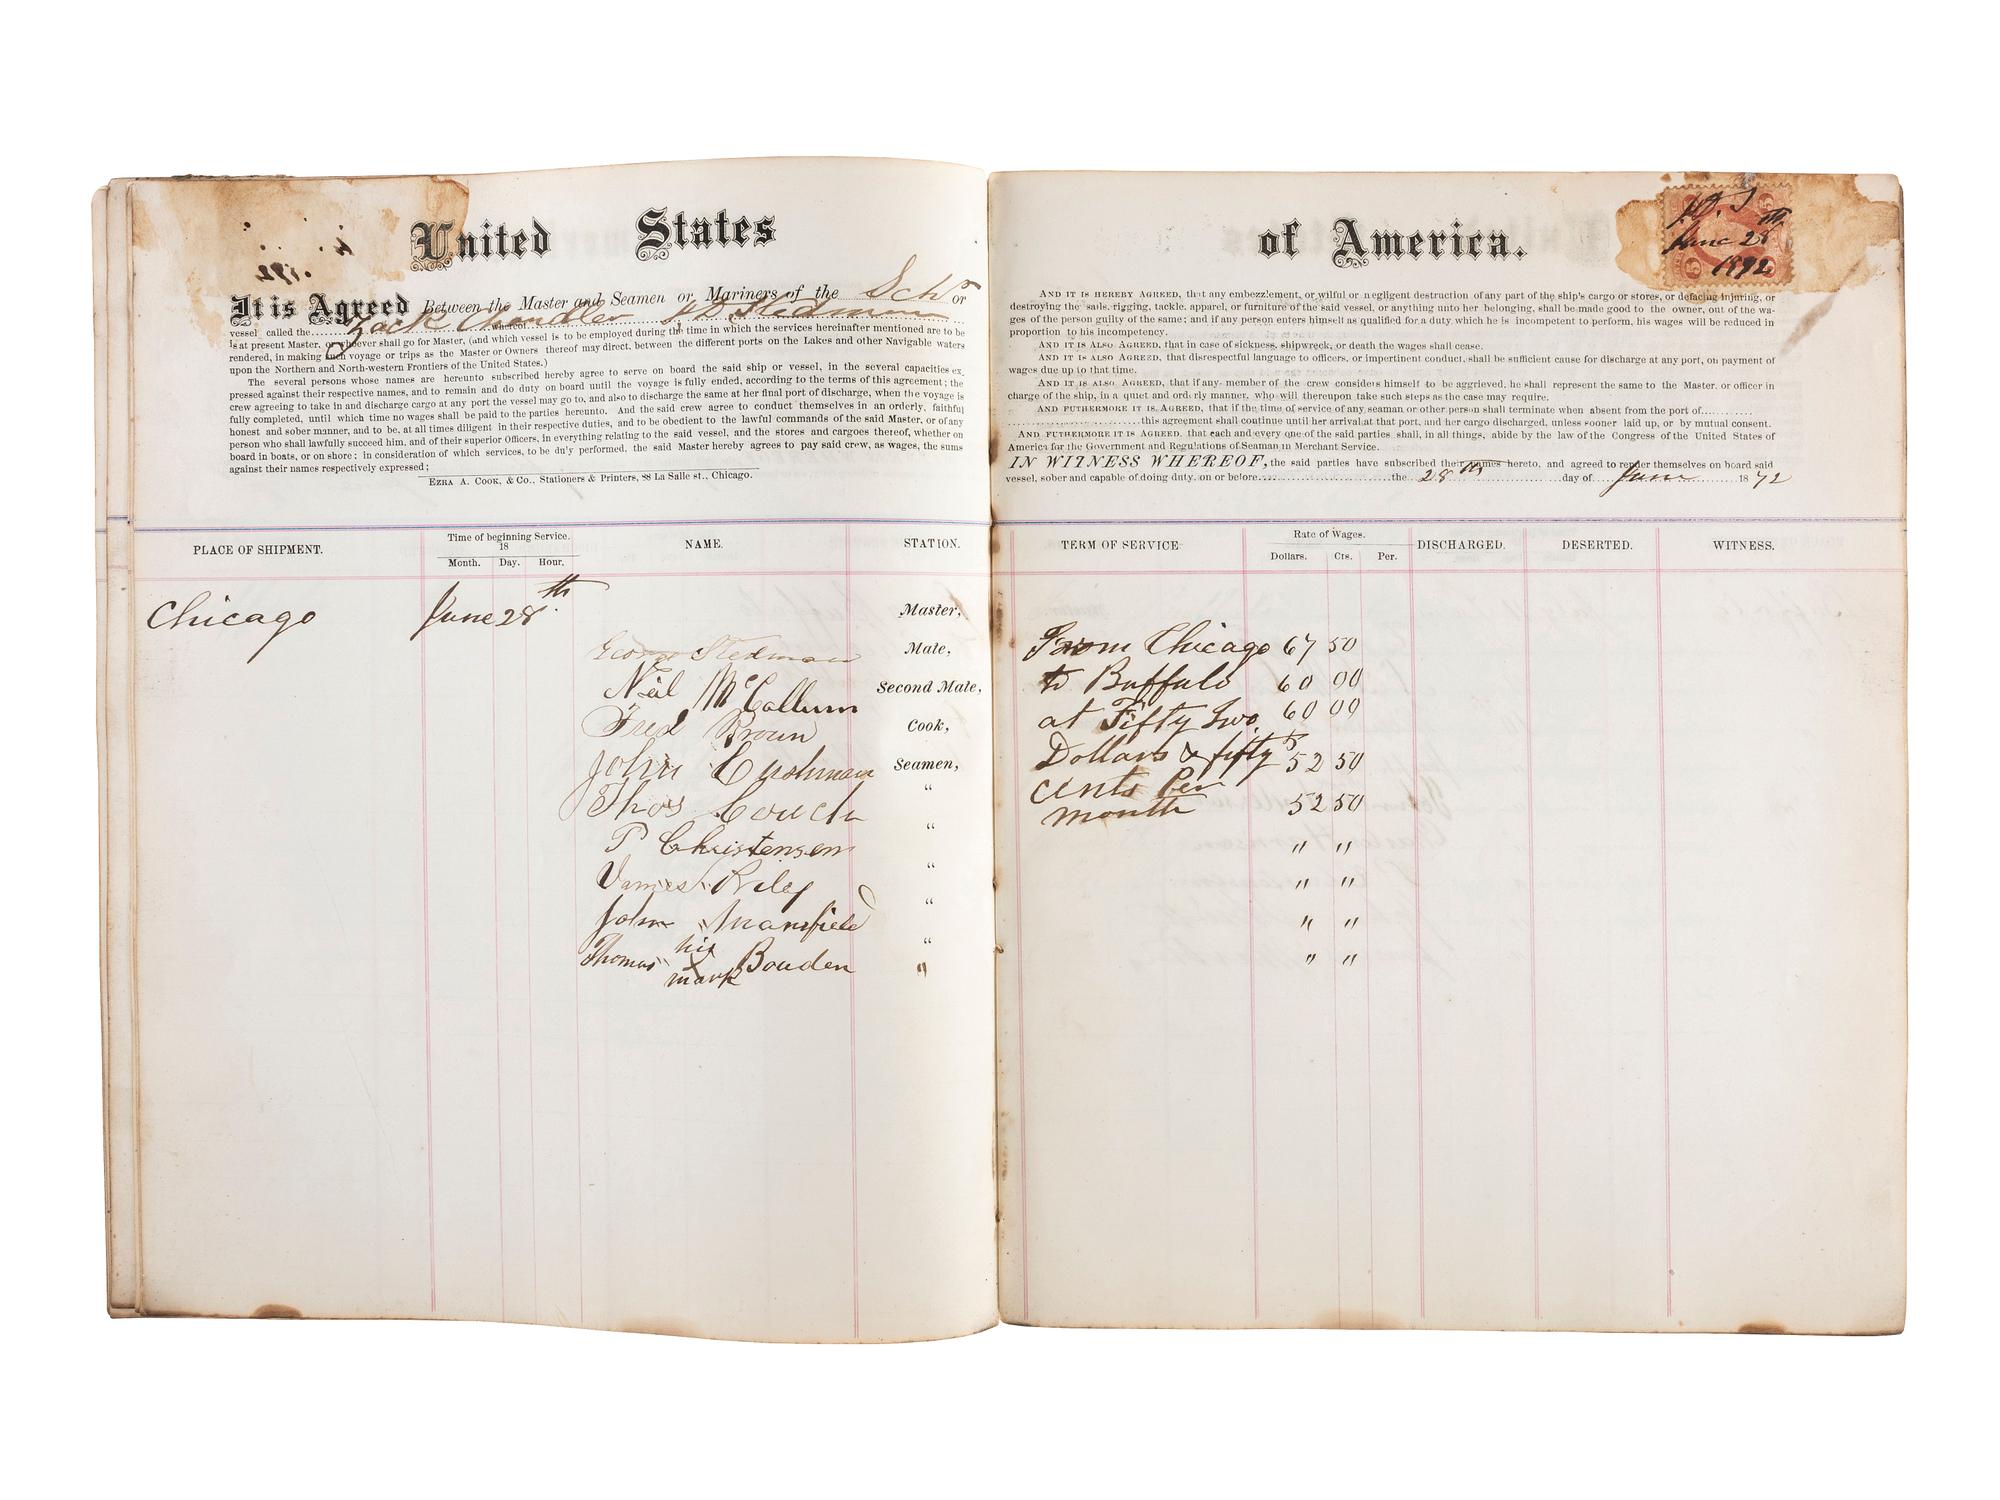 United States
It is Agreed Between the Master and Seamen or Mariners of the Schr or
vessel called the Zack Chandler whereof H D Stedman
is at present Master, or whoever shall go for Master, (and which vessel is to be employed during the time in which the services hereinafter mentioned are to be
rendered, in making such voyage or trips as the Master or Owners thereof may direct, between the different ports on the Lakes and other Navigable waters
upon the Northern and North-western Frontiers of the United States.)
The several persons whose names are hereunto subscribed hereby agree to serve on board the said ship or vessel, in the several capacities ex
pressed against their respective names, and to remain and do duty on board until the voyage is fully ended, according to the terms of this agreement; the
crew agreeing to take in and discharge cargo at any port the vessel may go to, and also to discharge the same at her final port of discharge, when the voyage is
fully completed, until which time no wages shall be paid to the parties hereunto. And the said crew agree to conduct themselves in an orderly, faithful
honest and sober manner, and to be, at all times diligent in their respective duties, and to be obedient to the lawful commands of the said Master, or of any
person who shall lawfully succeed him, and of their superior Officers, in everything relating to the said vessel, and the stores and cargoes thereof, whether on
board in boats, or on shore; in consideration of which services, to be duly performed, the said Master hereby agrees to pay said crew, as wages, the sums
against their names respectively expressed;
EZRA A. COOK, & Co., Stationers & Printers, 88 La Salle st., Chicago.
PLACE OF SHIPMENT.
Time of beginning Service.
18
Month. Day. Hour.
NAME.
STATION.
Chicago June 28th Master,
George Stedman Mate,
Neil McCallum Second Mate,
Fred Brown Cook,
John Cushman Seamen,
Thos Couch "
P Christensen "
James Riley "
John Mansfield "
Thomas his x mark Bouden "
of America.
H. D. S
June 28th
1872
AND IT IS HEREBY AGREED, that any embezzlement, or wilful or negligent destruction of any part of the ship's cargo or stores, or defacing injuring, or
destroying the sails, rigging, tackle, apparel, or furniture of the said vessel, or anything unto her belonging, shall be made good to the owner, out of the wa-
ges of the person guilty of the same; and if any person enters himself as qualified for a duty which he is incompetent to perform, his wages will be reduced in
proportion to his incompetency.
AND IT IS ALSO AGREED, that in case of sickness, shipwreck, or death the wages shall cease.
AND IT IS ALSO AGREED, that disrespectful language to officers, or impertinent conduct, shall be sufficient cause for discharge at any port, on payment of
wages due up to that time.
AND IT IS ALSO AGREED, that if any member of the crew considers himself to be aggrieved, he shall represent the same to the Master, or officer in
charge of the ship, in a quiet and orderly manner, who will thereupon take such steps as the case may require.
AND FUTHERMORE IT IS AGREED, that if the time of service of any seaman or other person shall terminate when absent from the port of
this agreement shall continue until her arrival at that port, and her cargo discharged, unless sooner laid up, or by mutual consent.
AND FUTHERMORE IT IS AGREED, that each and every one of the said parties shall, in all things, abide by the law of the Congress of the United States of
America for the Government and Regulations of Seaman in Merchant Service.
IN WITNESS WHEREOF, the said parties have subscribed their names hereto, and agreed to render themselves on board said
vessel, sober and capable of doing duty on or before the 28th day of June 1872
TERM OF SERVICE
Rate of Wages.
Dollars. Cts. Per.
DISCHARGED.
DESERTED.
WITNESS.
From Chicago 67 50
to Buffalo 60 00
at Fifty Two 60 00
Dollars & fifty 52 50
cents Per
month 52 50
" "
" "
" "
" "